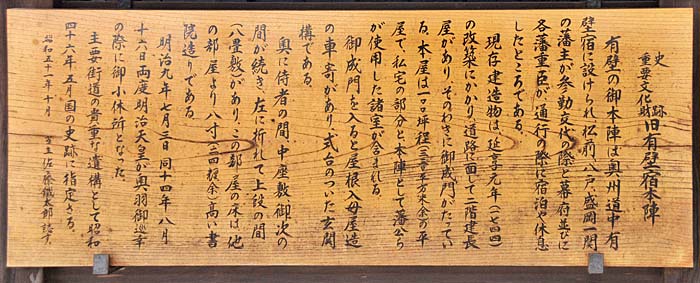 史跡
重要文化財
旧有壁宿本陣
有壁の御本陣は奥州道中有
壁宿に設けられ松前、八戸、盛岡、一関
の藩主が参勤交代の際と幕府並びに
各藩重臣が、通行の際に宿泊や休息
したところである。
現存建造物は、延享元年(一七四四)
の改築にかかり、道路に面して二階建長
屋があり、そのわきに御成門がたってい
る。本屋は一二〇坪程の平
屋で、私宅の部分と本陣として藩公ら
が使用した諸室が含まれる。
御成門を入ると屋根入母屋造
の車寄があり、式台のついた玄関
構である。
奥に侍者の間、中座敷、御次の
間が続き、左に折れて上段の間
(八畳敷)があり、この部屋の床は、他
の部屋より八寸(二四糎余)高い書
院造りである。
明治九年七月三日、同十四年八月
十六日両度明治天皇が奥羽御巡幸
の際に御小休所となった。
主要街道の貴重な遺構として昭和
四十六年五月国の史跡に指定さる。
昭和五十一年十月
佐藤鐵太郎 誌す。